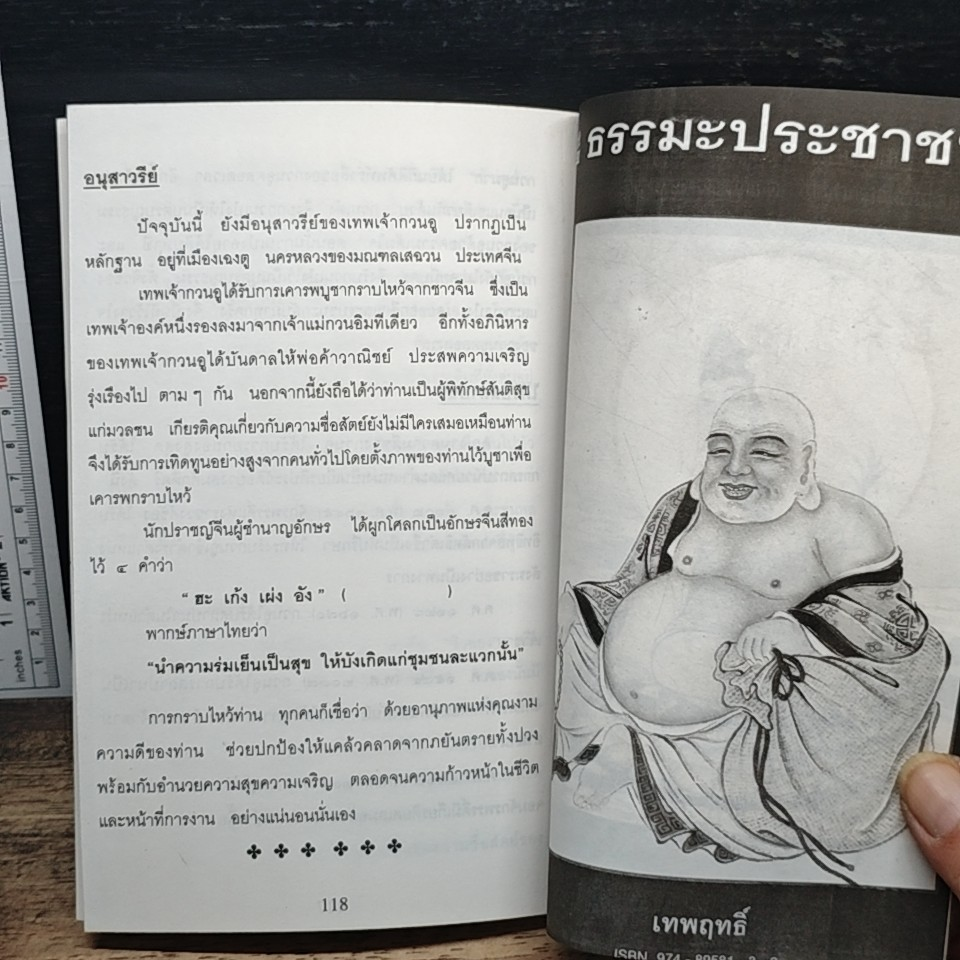 อนุสาวรีย์
ปัจจุบันนี้ ยังมีอนุสาวรีย์ของเทพเจ้ากวนอู ปรากฏเป็น
หลักฐาน อยู่ที่เมืองเฉงตู นครหลวงของมณฑลเสฉวน ประเทศจีน
เทพเจ้ากวนอูได้รับการเคารพบูชากราบไหว้จากชาวจีน ซึ่งเป็น
เทพเจ้าองค์หนึ่งรองลงมาจากเจ้าแม่กวนอิมทีเดียว อีกทั้งอภินิหาร
ของเทพเจ้ากวนอูได้บันดาลให้พ่อค้าวาณิชย์ ประสพความเจริญ
รุ่งเรืองไป ตามๆ กัน นอกจากนี้ยังถือได้ว่าท่านเป็นผู้พิทักษ์สันติสุข
แก่มวลชน เกียรติคุณเกี่ยวกับความซื่อสัตย์ยังไม่มีใครเสมอเหมือนท่าน
จึงได้รับการเทิดทูนอย่างสูงจากคนทั่วไปโดยตั้งภาพของท่านไว้บูชาเพื่อ
เคารพกราบไหว้
นักปราชญ์จีนผู้ชำนาญอักษร ได้ผูกโศลกเป็นอักษรจีนสีทอง
ไว้ ๔ คำว่า
"ฮะ เก้ง เผ่ง อัง" ( )
พากษ์ภาษาไทยว่า
"นำความร่มเย็นเป็นสุข ให้บังเกิดแก่ชุมชนละแวกนั้น"
การกราบไหว้ท่าน ทุกคนก็เชื่อว่า ด้วยอานุภาพแห่งคุณงาม
ความดีของท่าน ช่วยปกป้องให้แคล้วคลาดจากภยันตรายทั้งปวง
พร้อมกับอำนวยความสุขความเจริญ ตลอดจนความก้าวหน้าในชีวิต
และหน้าที่การงาน อย่างแน่นอนนั่นเอง
118
ธรรมะประชาช
เทพฤทธิ์
ISBN 974-89581
inches